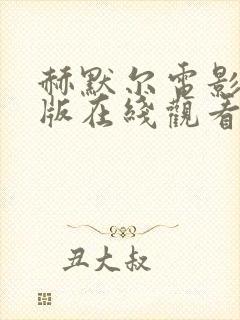 赫默尔电影
版在线觀看
丑大叔